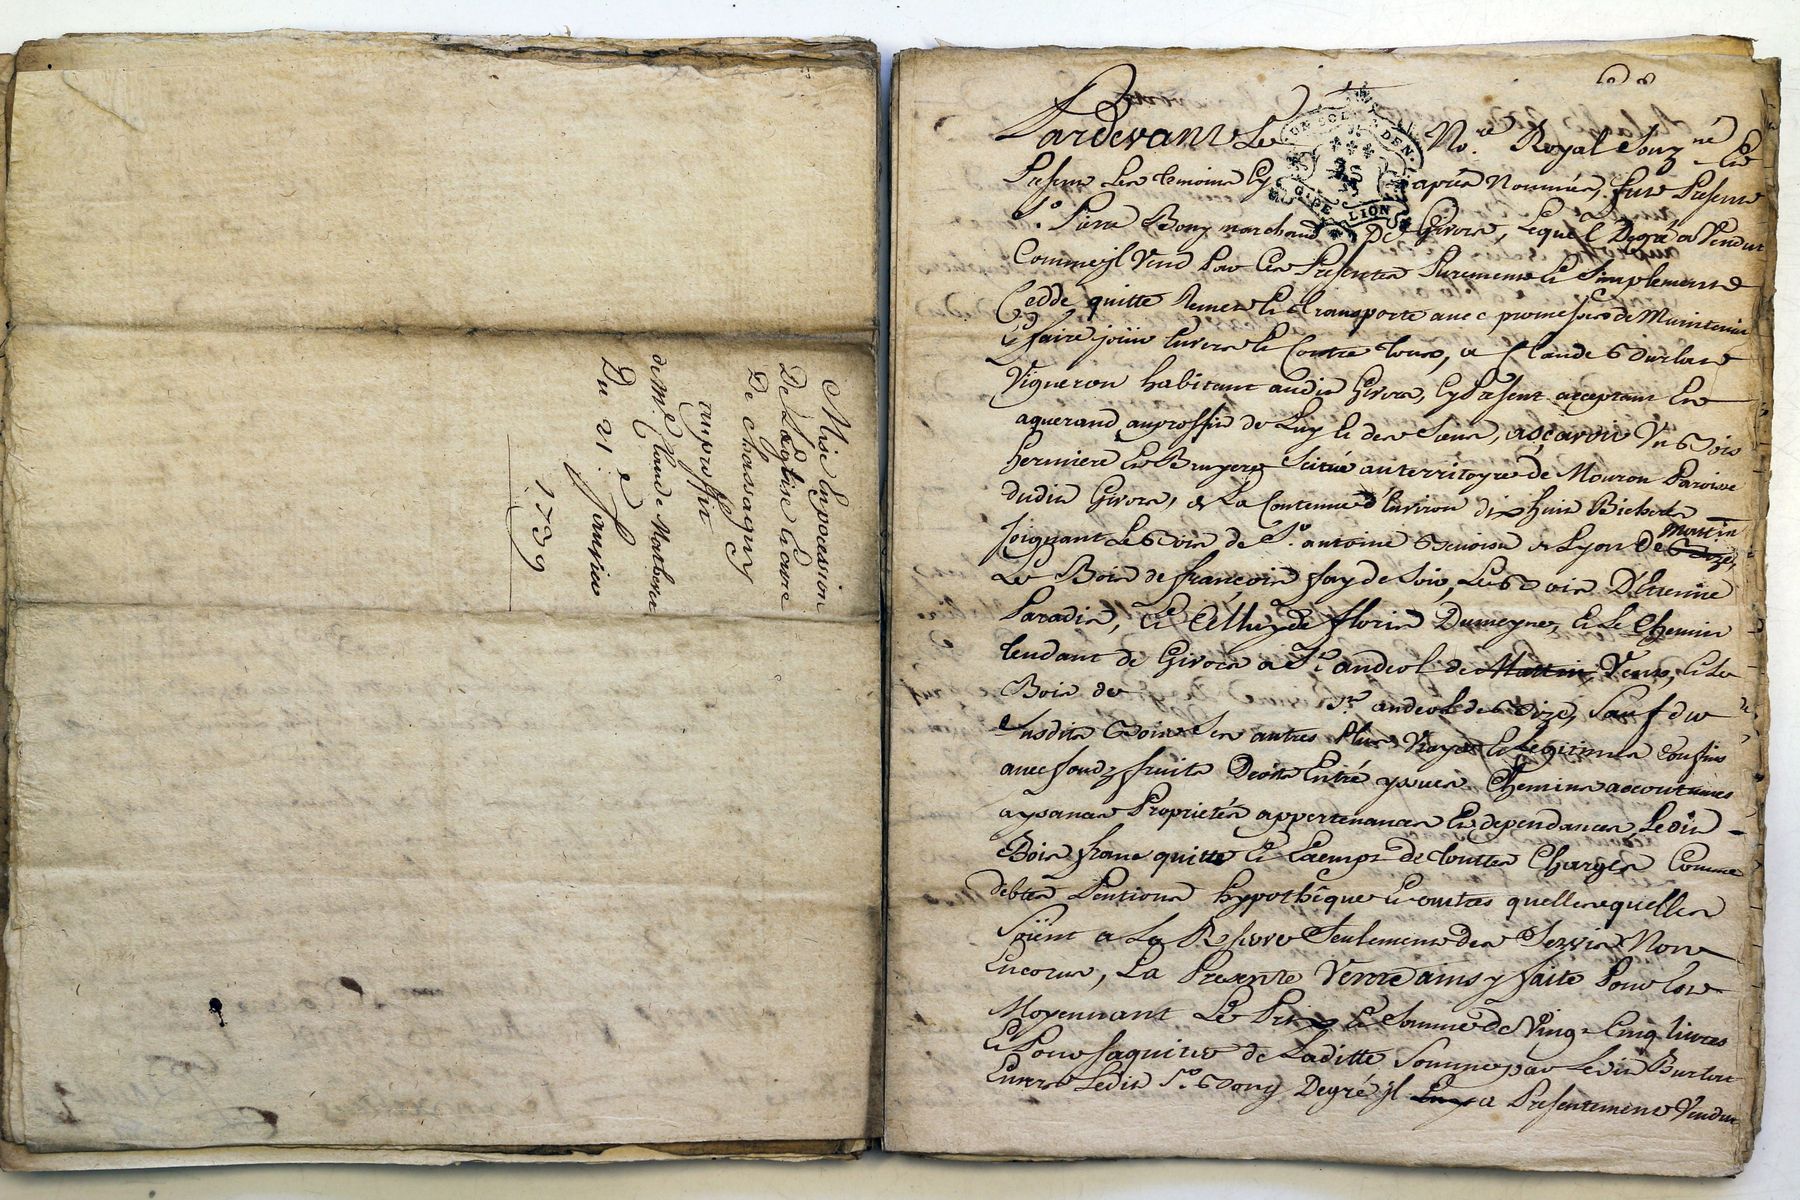 Mise En pocession
De L'Eglise Cure
De chassagny
au proffit
de M.e Claude
Du 21.e Janvier
1739
Pardevant Le No.re Royal Souz.né En
Presence Les temoins Cy aprés Nommés, fut Present
S.r Pierre Bony marchand De Givors, Lequel De gré a Vendu
Comme jl Vend Par Ces Presentes Purement et Simplement
Cedde quitte Remet Et Transporte avec promesse de Maintenir
Et faire joüir Envers Et Contre tous, a Claude Burlat
Vigneron habitant audit Givors, Cy Present acceptant Et
aquerand au proffit de Luy Et des Siens, asçavoir Un Bois
hermiere Et Bruyere Scitué au territoyre de Mouron Paroisse
dudit Givors, de La Contenue d'Environ dix huit Bicherés
Joignant Le Bois de S.r antoine de Lyon de martin
Le Bois de françois fay de Soir, Le Bois D'Etienne
Paradis, Et Celluy de floris Dumeyne, Et Le Chemin
tendant de Givors a S.t andeol de Vent, Et Le
Bois de S.t andeol de Bize, Sauf du de
susdits Bois Ses autres Plus Vrays Et Legitimes Confins
avec fondz fruits Droits Entré yssues Chemins accoutumés
aysances Proprietés appertenances Et dependances, Ledit
Bois franc quitte Et Exempt de touttes Charges Comme
debtes Pentions hypothêque Et autres quelles quelles
Soïent a La Reserve Seulement des Servis Non
Encorus, La Presente Vente ainsy faite Pour Et
Moyennant Le Prix Et Somme de Vingt Cinq livres
Et Pour Laditte Somme par Ledit Burlat
Envers Ledit S.r Bony De gré jl a Presentement Vendu
UN SOL DEN.
G. DE LION